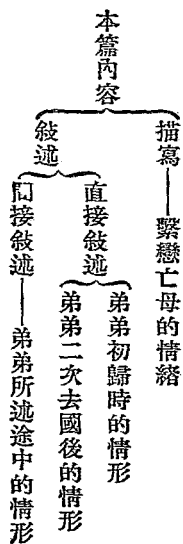 本篇內容
描寫——繫戀亡母的情緒
敍述
直接敍述
弟弟初歸時的情形
弟弟二次去國後的情形
間接敍述——弟弟所述途中的情形